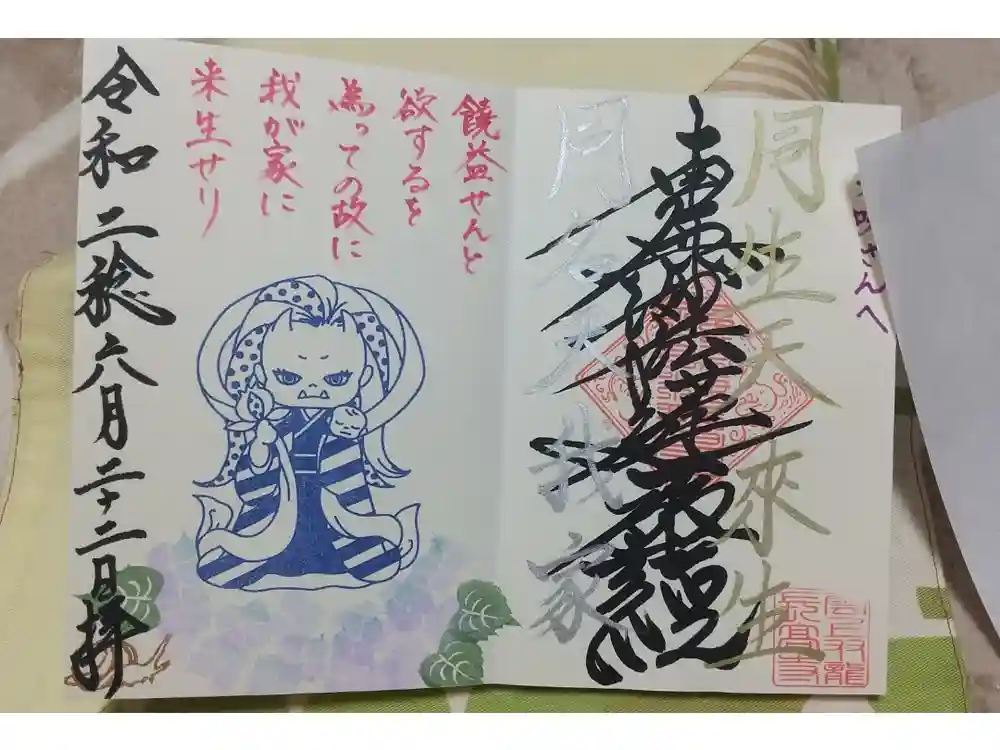 さんへ
同生天來生
南無妙法蓮華経
同名天我家
長高寺
饒益せんと
欲するを
為っての故に
我が家に
来生せり
令和二稔六月二十二日拝